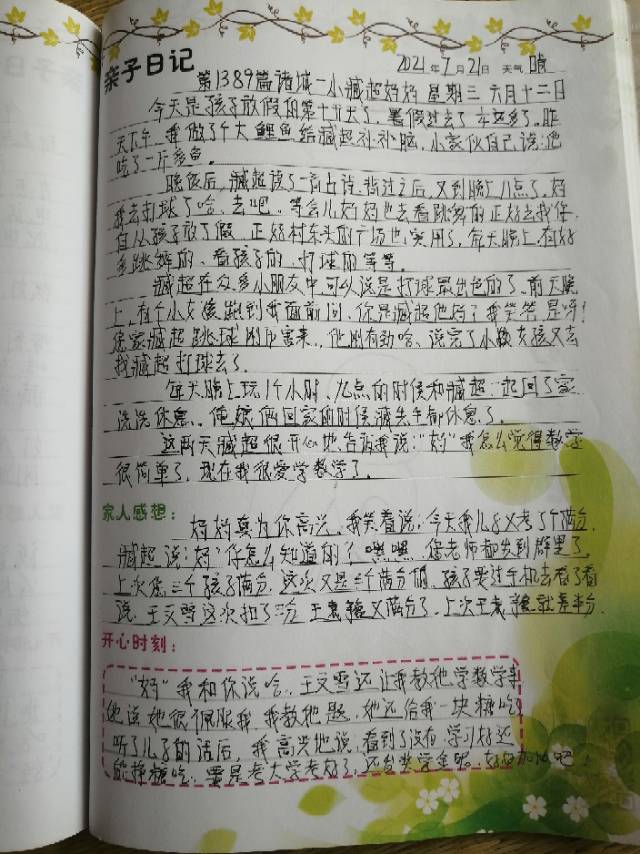 亲子日记
2021年7月21日 天气 晴
第1389篇诸城一小臧超妈妈 星期三 六月十二日
今天是孩子放假的第十九天了,暑假过去了 好多了,昨
天下午,我做了个大鲤鱼给臧超补补脑,小家伙自己说:他
吃了一斤多鱼。
晚饭后,臧超读了一首古诗,背过之后,又到晚上八点了,妈
我去打球了哈、去吧。等会儿妈妈也去看跳舞的正好去找你,
自从孩子放了假,正好村东头的广场也实用了,每天晚上,有好
多跳舞的、看孩子的、打球的等等。
臧超在众多小朋友中,可以说是打球最出色的了、前天晚
上、有个小女孩跑到我面前问,你是臧超他妈?我笑答:是呀!
您家臧超跳球 厉害来、他刚有劲哈、说完了小女孩又去
找臧超打球去了。
每天晚上玩1个小时、九点的时候和臧超一起回了家,
洗洗休息、俺娘俩回家的时候 都休息了。
这两天臧超很开心地告诉我说:"妈"我怎么觉得数学
很简单了,现在我很爱学数学了。
家人感想:
妈妈真为你高兴,我笑着说:今天我儿子又考了个满分,
臧超说:妈"你怎么知道的?嘿嘿,您老师都发到群里了,
上次您三个孩子满分,这次又是三个满分 俩、孩子要过手机去看了看
说、王文雪这次扣了三分 王 又满分了,上次王 就差半分
开心时刻:
"妈"我和你说哈、王文雪还让我教他学数学来
她说她很佩服我,我教他题,她还给我一块糖吃,
听了儿子的话后,我高兴地说,看到了没有,学习好还
能挣糖吃,要是考大学考好了,还有奖学金呢、好好加油吧!